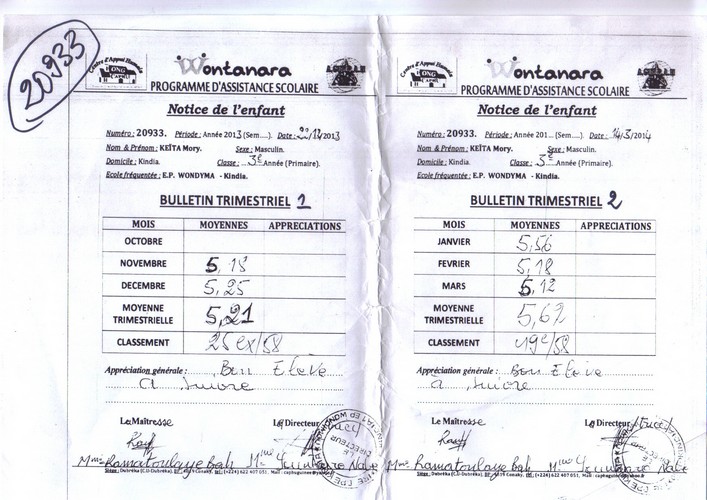 20933
Centre d'Appel Humain
ONG
CAPHU
Wontanara
PROGRAMME D'ASSISTANCE SCOLAIRE
Notice de l'enfant
Numéro : 20933. Période : Année 2013 (Sem.....). Date : 22/12/2013
Nom & Prénom : KEÏTA Mory. Sexe : Masculin.
Domicile : Kindia. Classe : ..3e Année (Primaire).
Ecole fréquentée : E.P. WONDYMA - Kindia.
BULLETIN TRIMESTRIEL 1
MOIS MOYENNES APPRECIATIONS
OCTOBRE
NOVEMBRE 5,18
DECEMBRE 5,25
MOYENNE TRIMESTRIELLE 5,21
CLASSEMENT 25 ex/58
Appréciation générale : Bon Elève
à suivre
La Maîtresse Le Directeur
Mme Ramatoulaye Bah Mme
Centre d'Appel Humain
ONG
CAPHU
Wontanara
PROGRAMME D'ASSISTANCE SCOLAIRE
Notice de l'enfant
Numéro : 20933. Période : Année 201... (Sem.....). Date : 14/3/2014
Nom & Prénom : KEÏTA Mory. Sexe : Masculin.
Domicile : Kindia. Classe : ...3e Année (Primaire).
Ecole fréquentée : E.P. WONDYMA - Kindia.
BULLETIN TRIMESTRIEL 2
MOIS MOYENNES APPRECIATIONS
JANVIER 5,56
FEVRIER 5,18
MARS 5,12
MOYENNE TRIMESTRIELLE 5,62
CLASSEMENT 49e/58
Appréciation générale : Bon Elève
à suivre
La Maîtresse Le Directeur
Mme Ramatoulaye Bah Mme